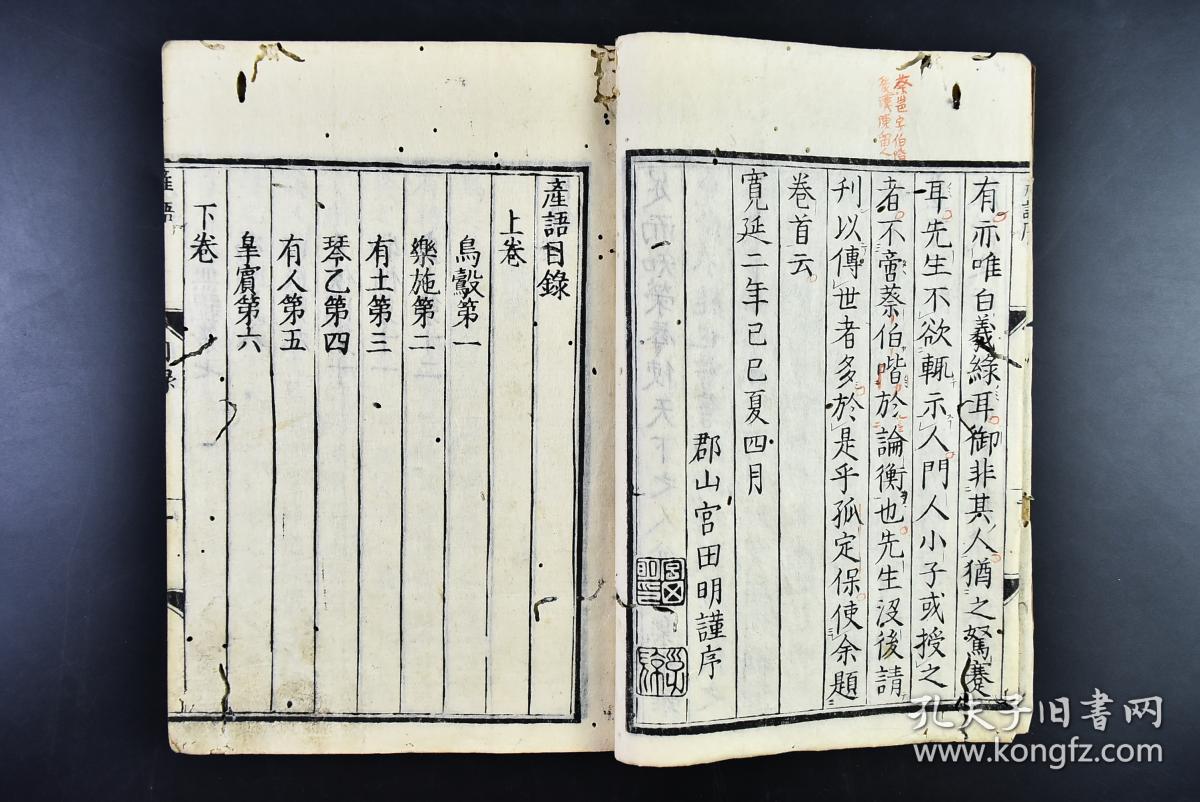 蔡邕字伯喈
後漢陳留人
有亦唯白羲綠耳御非其人猶之駑蹇
耳先生不欲輒示人門人小子或授之
者不啻蔡伯喈於論衡也先生沒後請
刊以傳世者多於是乎孤定保使余題
卷首云
寬延二年己巳夏四月
郡山宮田明謹序
產語目錄
上卷
鳥鷇第一
樂施第二
有土第三
琴乙第四
有人第五
皐賓第六
下卷
孔夫子旧书网
www.kongfz.com